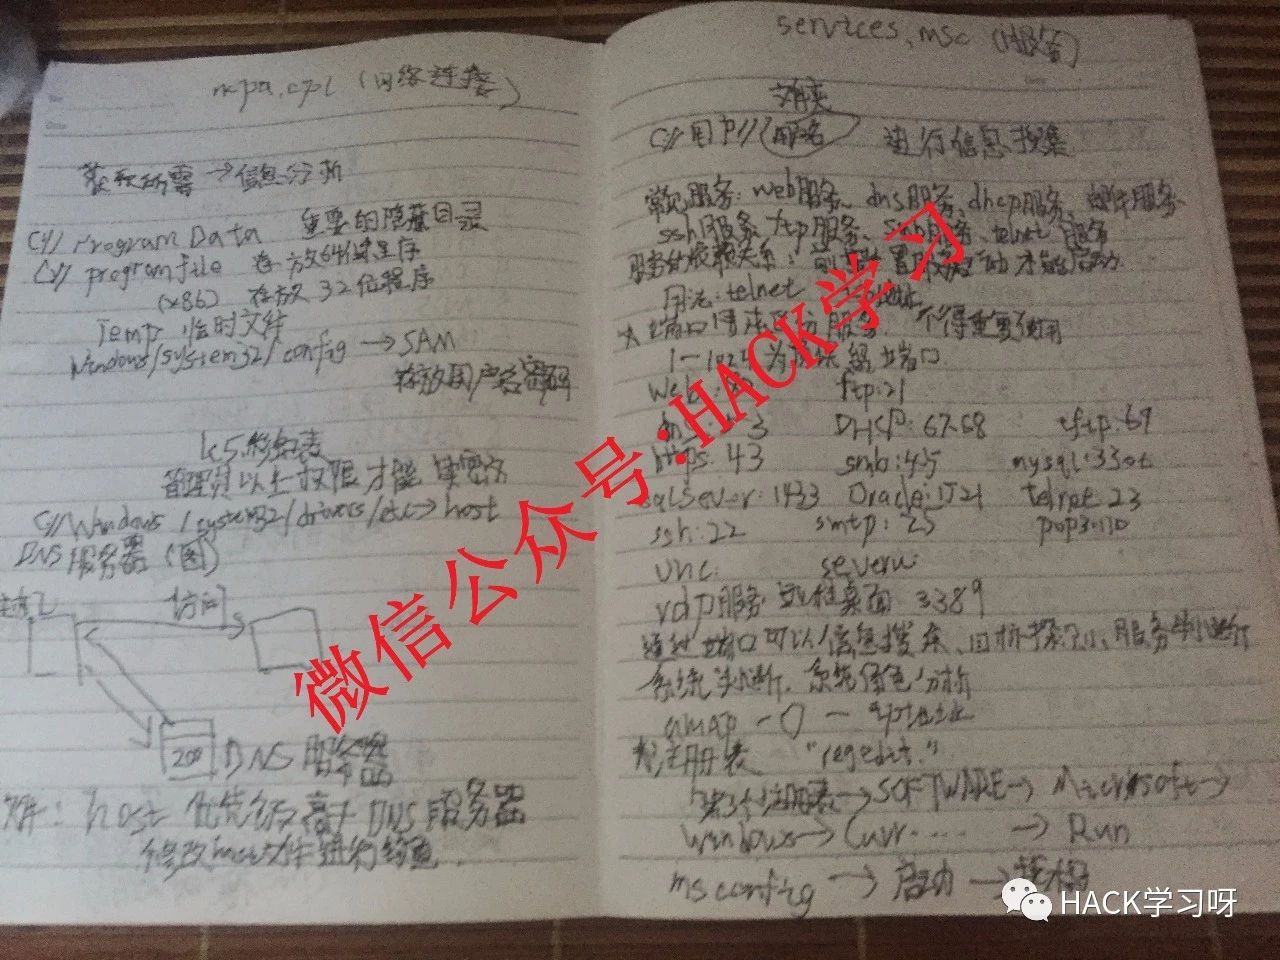 ncpa.cpl (网络连接)
获取所需 → 信息分析
C// Program Data 重要的隐藏目录
C// program file 存放64位程序
(x86) 存放32位程序
Temp 临时文件
Windows/system32/config → SAM
存放用户名密码
管理员以上权限才能
C//Windows/system32/drivers/etc → host
DNS服务器 (图)
访问
DNS 服务器
host 优先级高于DNS服务器
services.msc (服务)
文件夹
C//用户//用户名 进行信息搜集
常见服务: web服务、dns服务、dhcp服务、邮件服务
ssh服务、ftp服务、smb服务、telnet服务
服务的依赖关系:
用法: telnet
不得重复使用
1-1024为
web: ftp:21
DHCP:67.68 tftp:69
https:43 smb:445 mysql:3306
sqlSever:1433 Oracle:1521 telnet:23
ssh:22 smtp:25 pop3:110
vnc:
rdp服务 远程桌面 3389
通过端口可以信息搜集、目标探测、服务判断
系统判断、系统角色分析
注册表 "regedit."
第3个注册表→SOFTWARE→Microsoft→
windows→Curr....→Run
msconfig → 启动 →
微信公众号:HACK学习
HACK学习呀